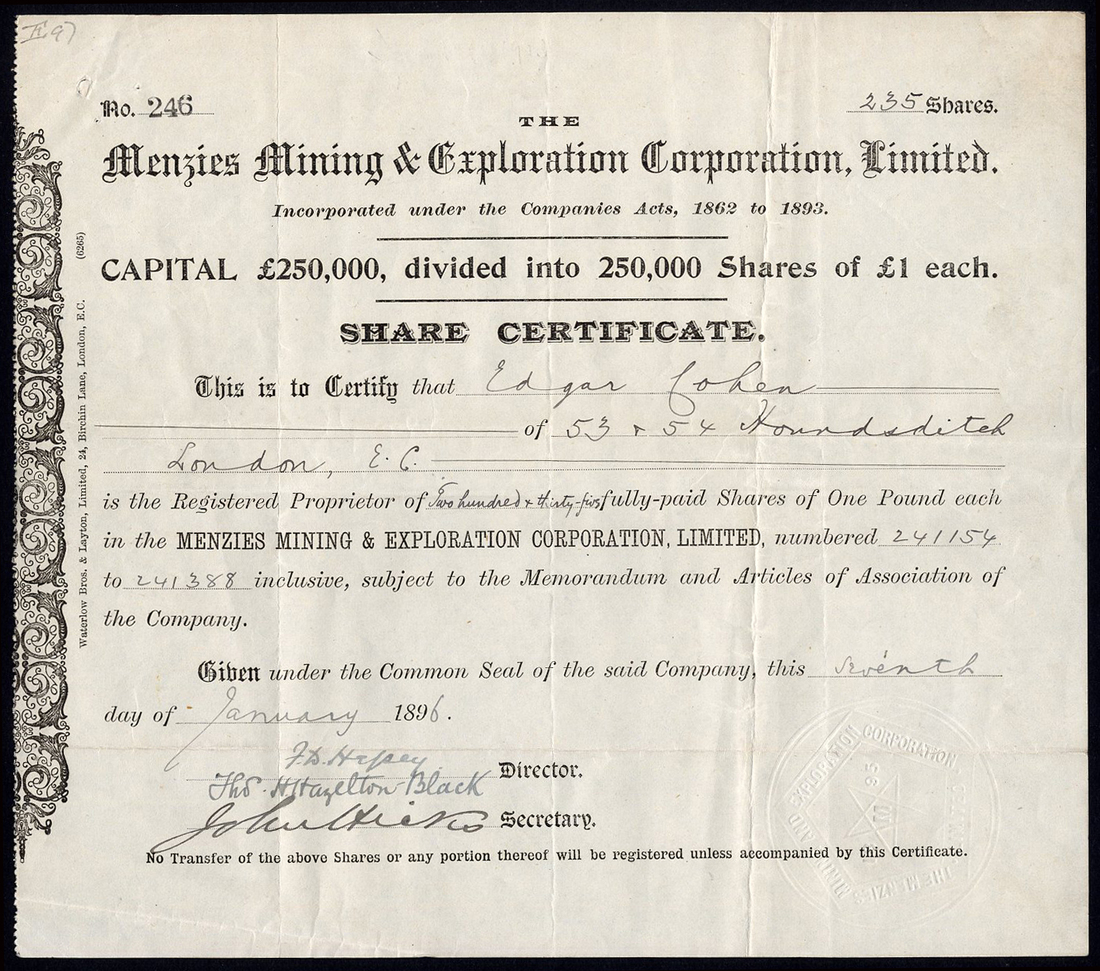 No. 246
235 Shares.
THE
Menzies Mining & Exploration Corporation, Limited.
Incorporated under the Companies Acts, 1862 to 1893.
CAPITAL £250,000, divided into 250,000 Shares of £1 each.
SHARE CERTIFICATE.
This is to Certify that Edgar Cohen
of 53 & 54 Houndsditch
London, E.C.
is the Registered Proprietor of Two hundred & thirty-five fully-paid Shares of One Pound each
in the MENZIES MINING & EXPLORATION CORPORATION, LIMITED, numbered 241154
to 241388 inclusive, subject to the Memorandum and Articles of Association of
the Company.
Given under the Common Seal of the said Company, this seventh
day of January 1896.
Director.
Thos. H. Hazelton Black
John Hicks Secretary.
No Transfer of the above Shares or any portion thereof will be registered unless accompanied by this Certificate.
Waterlow Bros. & Layton, Limited, 24, Birchin Lane, London, E.C. (6265)
THE MENZIES MINING AND EXPLORATION CORPORATION